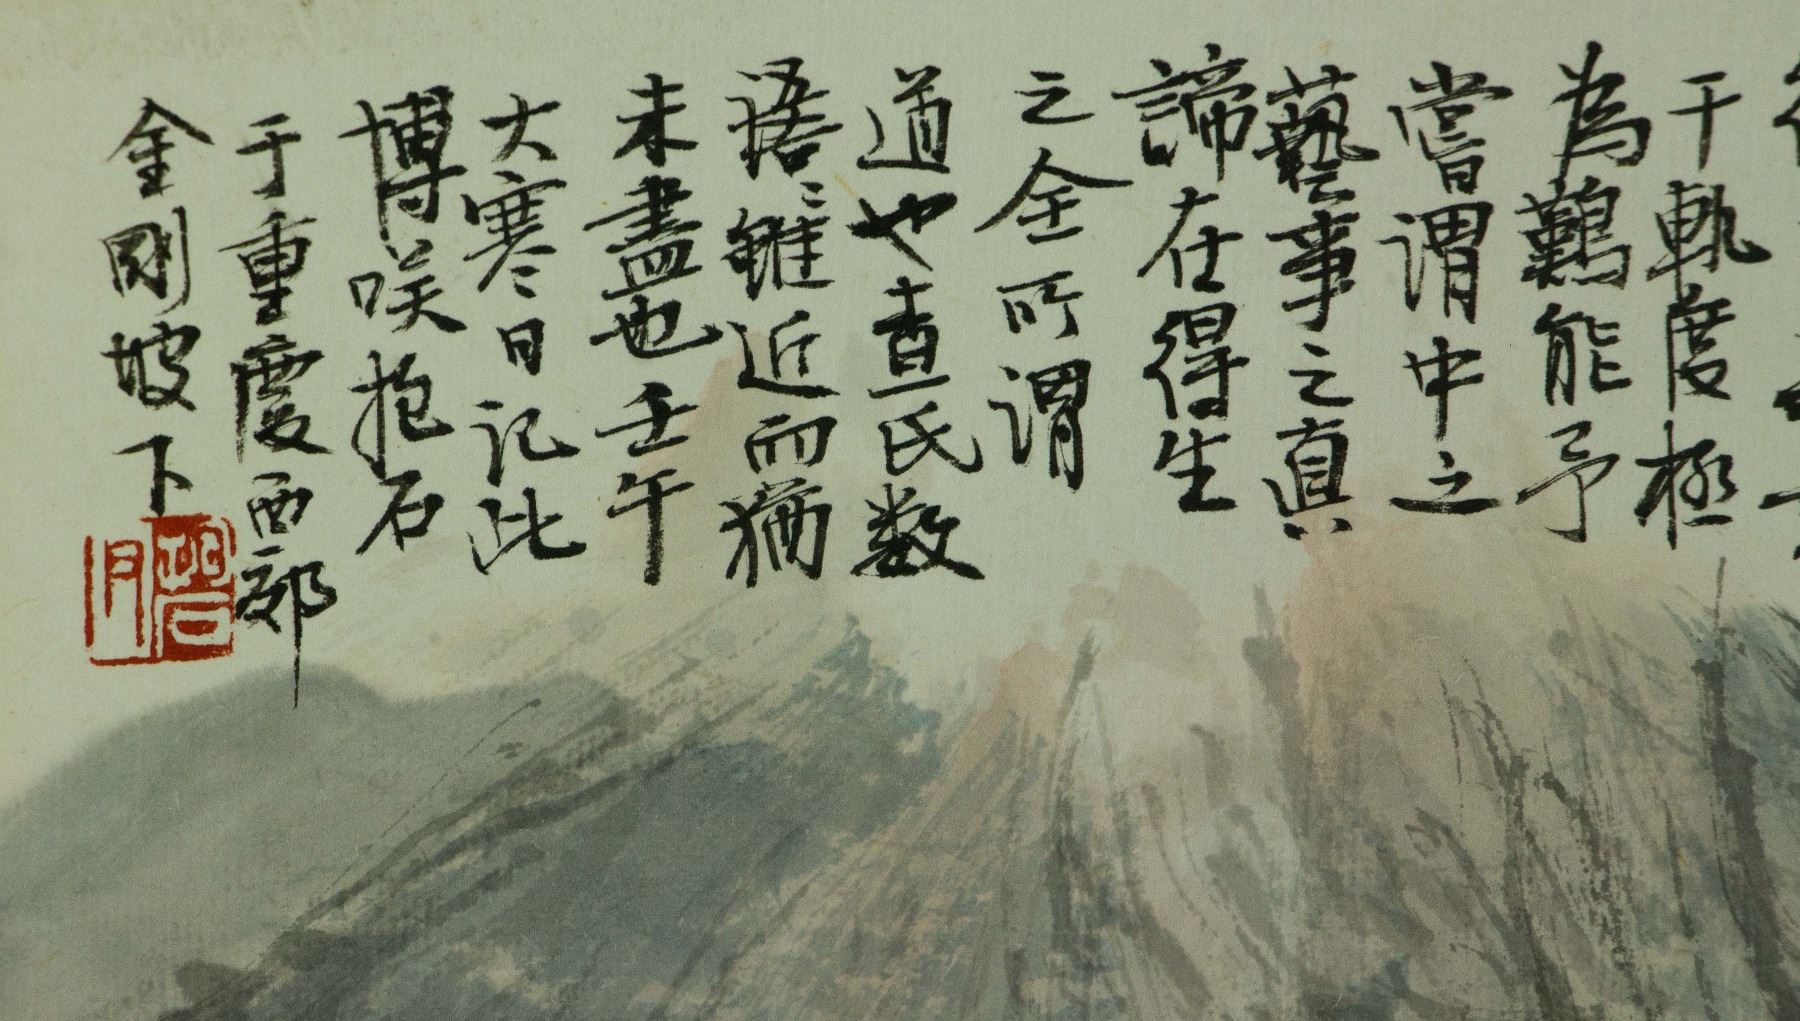 于軌度極
為鷄能予
嘗謂中之
藝事之真
諦在得生
之全所謂
道也查氏数
語〻雖近而猶
未盡也壬午
大寒日記此
博咲抱石
于重慶西郊
金剛坡下